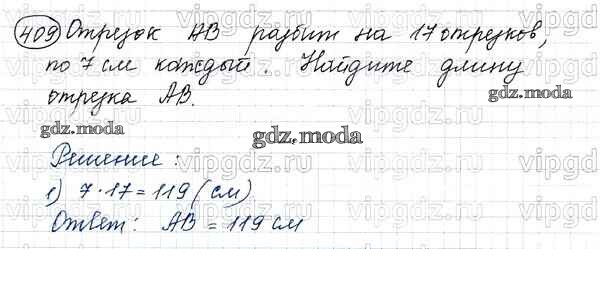 409 Отрезок АВ разбит на 17 отрезков,
по 7 см каждый. Найдите длину
отрезка АВ.
gdz.moda
gdz.moda
gdz.moda
Решение:
1) 7·17=119 (см)
Ответ: АВ = 119 см